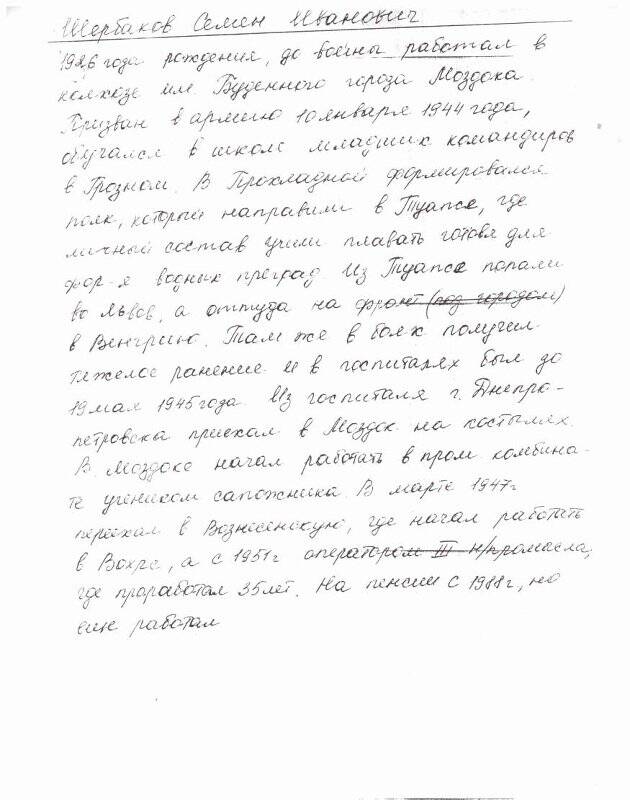 Щербаков Семен Иванович
1926 года рождения, до войны работал в
колхозе им Буденного города Моздока.
Призван в армию 10 января 1944 года,
обучался в школе младших командиров
в Грозном. В Прохладной формировался
полк, который направили в Туапсе, где
личный состав учили плавать готовя для
фор-я водных преград. Из Туапсе попали
во Львов, а оттуда на фронт (под городом)
в Венгрию. Там же в боях получил
тяжелое ранение и в госпиталях был до
19 мая 1945 года. Из госпиталя г. Днепро-
петровска приехал в Моздок на костылях.
В Моздоке начал работать в пром. комбина-
те учеником сапожника. В марте 1947г
переехал в Вознесенскую, где начал работать
в Вохре, а с 1951г оператором III н/промысла,
где проработал 35 лет. На пенсии с 1988г, но
еще работал